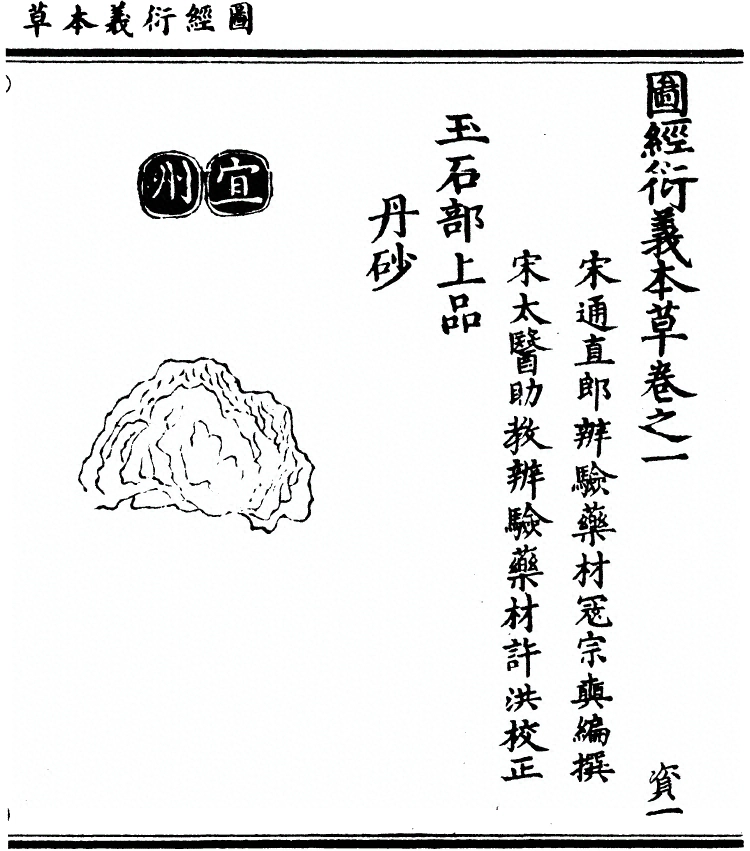 圖經衍義本草
圖經衍義本草卷之一
資一
宋通直郎辨驗藥材冦宗奭編撰
宋太醫助教辨驗藥材許洪校正
玉石部上品
丹砂
宜州